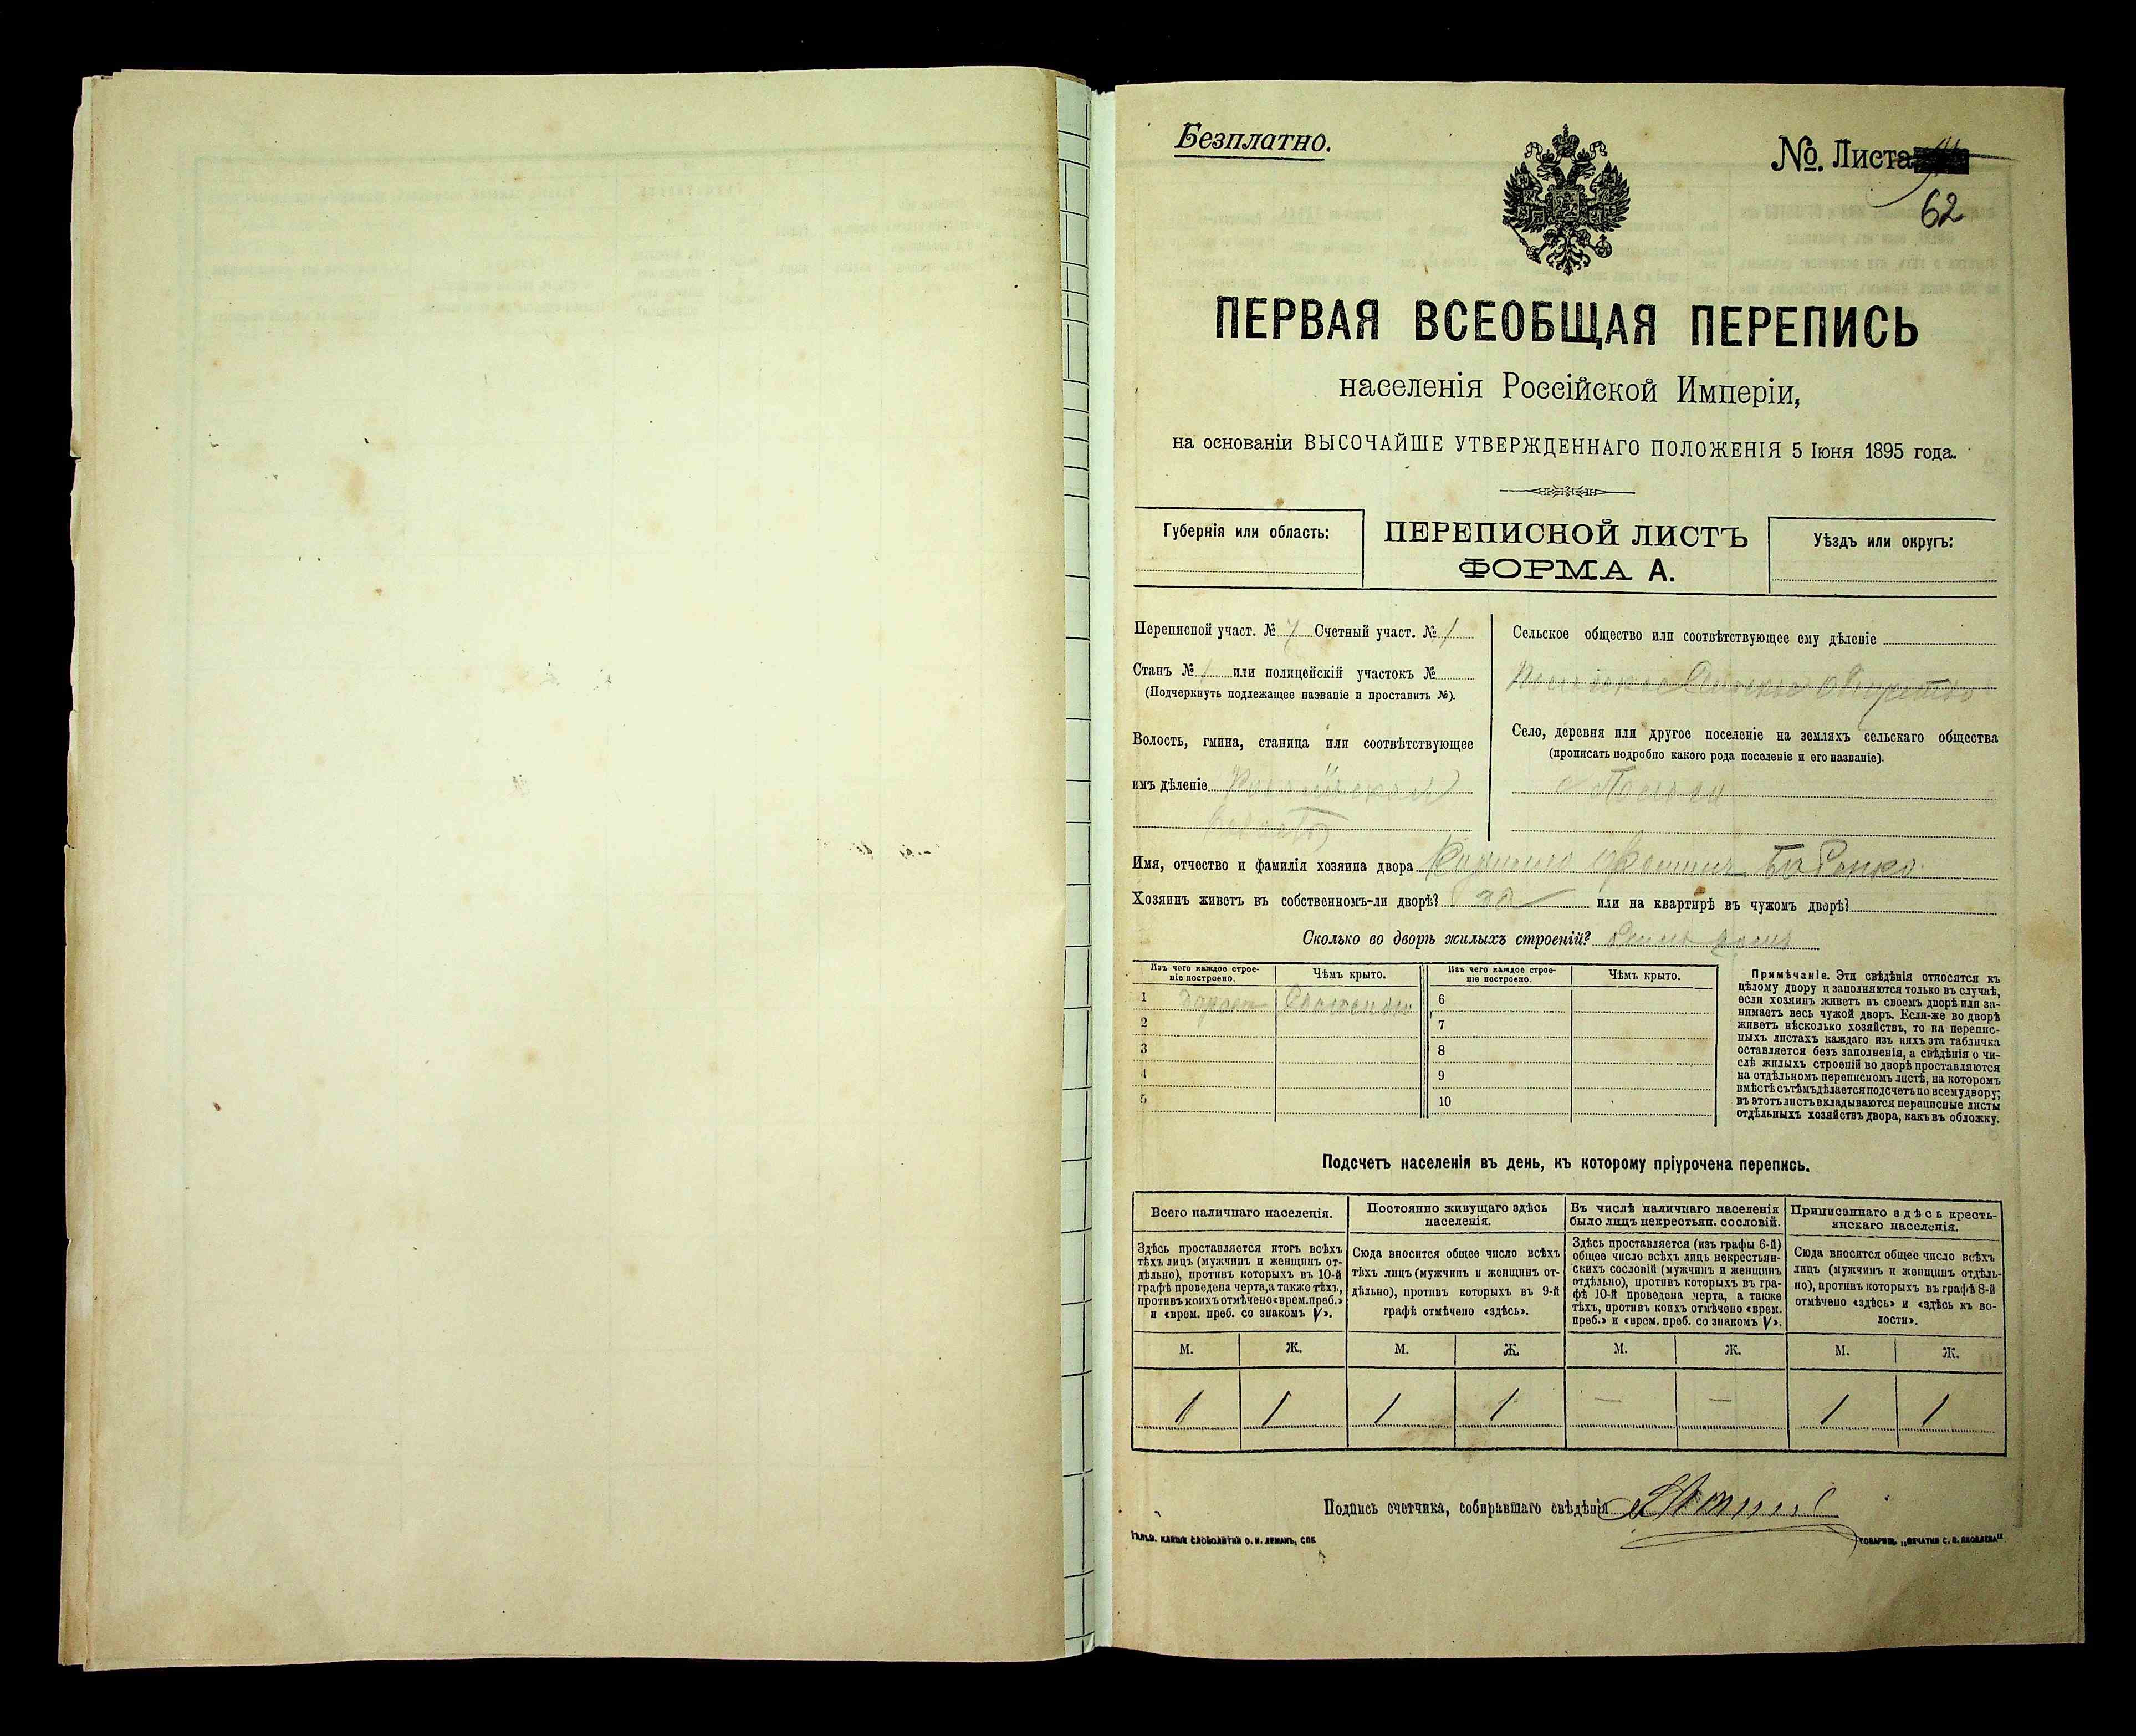 Безплатно.
№. Листа
62
ПЕРВАЯ ВСЕОБЩАЯ ПЕРЕПИСЬ
населенія Россійской Имперіи,
на основаніи ВЫСОЧАЙШЕ УТВЕРЖДЕННАГО ПОЛОЖЕНІЯ 5 Іюня 1895 года.
Губернія или область:
ПЕРЕПИСНОЙ ЛИСТЪ
ФОРМА А.
Уѣздъ или округъ:
Переписной участ. № 7 Счетный участ. № 1
Станъ № 1 или полицейскій участокъ №
(Подчеркнуть подлежащее названіе и проставить №).
Волость, гмина, станица или соотвѣтствующее
имъ дѣленіе
Сельское общество или соотвѣтствующее ему дѣленіе
Село, деревня или другое поселеніе на земляхъ сельскаго общества
(прописать подробно какого рода поселеніе и его названіе).
Имя, отчество и фамилія хозяина двора
Хозяинъ живетъ въ собственномъ-ли дворѣ? или на квартирѣ въ чужомъ дворѣ?
Сколько во дворѣ жилыхъ строеній?
Изъ чего каждое строе-
ніе построено.
Чѣмъ крыто.
Изъ чего каждое строе-
ніе построено.
Чѣмъ крыто.
1
2
3
4
5
6
7
8
9
10
Примѣчаніе. Эти свѣдѣнія относятся къ
цѣлому двору и заполняются только въ случаѣ,
если хозяинъ живетъ въ своемъ дворѣ или за-
нимаетъ весь чужой дворъ. Если-же во дворѣ
живетъ нѣсколько хозяйствъ, то на перепис-
ныхъ листахъ каждаго изъ нихъ эта табличка
оставляется безъ заполненія, а свѣдѣнія о чи-
слѣ жилыхъ строеній во дворѣ проставляются
на отдѣльномъ переписномъ листѣ, на которомъ
вмѣстѣ съ тѣмъ дѣлается подсчетъ по всему двору;
въ этотъ листъ вкладываются переписные листы
отдѣльныхъ хозяйствъ двора, какъ въ обложку.
Подсчетъ населенія въ день, къ которому пріурочена перепись.
Всего наличнаго населенія.
Здѣсь проставляется итогъ всѣхъ
тѣхъ лицъ (мужчинъ и женщинъ от-
дѣльно), противъ которыхъ въ 10-й
графѣ проведена черта, а также тѣхъ,
противъ коихъ отмѣчено «врем. преб.»
и «врем. преб. со знакомъ V».
Постоянно живущаго здѣсь
населенія.
Сюда вносится общее число всѣхъ
тѣхъ лицъ (мужчинъ и женщинъ от-
дѣльно), противъ которыхъ въ 9-й
графѣ отмѣчено «здѣсь».
Въ числѣ наличнаго населенія
было лицъ некрестьян. сословій.
Здѣсь проставляется (изъ графы 6-й)
общее число всѣхъ лицъ некрестьян-
скихъ сословій (мужчинъ и женщинъ
отдѣльно), противъ которыхъ въ гра-
фѣ 10-й проведена черта, а также
тѣхъ, противъ коихъ отмѣчено «врем.
преб.» и «врем. преб. со знакомъ V».
Приписаннаго здѣсь кресть-
янскаго населенія.
Сюда вносится общее число всѣхъ
лицъ (мужчинъ и женщинъ отдѣль-
но), противъ которыхъ въ графѣ 8-й
отмѣчено «здѣсь» и «здѣсь къ во-
лости».
М. Ж. М. Ж. М. Ж. М. Ж.
1 1 1 1 — — 1 1
Подпись счетчика, собиравшаго свѣдѣнія
ГАЛЬВ. КЛИШЕ СЛОВОЛИТНИ О. И. ЛЕМАНЪ, СПБ
ТОВАРИЩ. „ПЕЧАТНЯ С. П. ЯКОВЛЕВА"